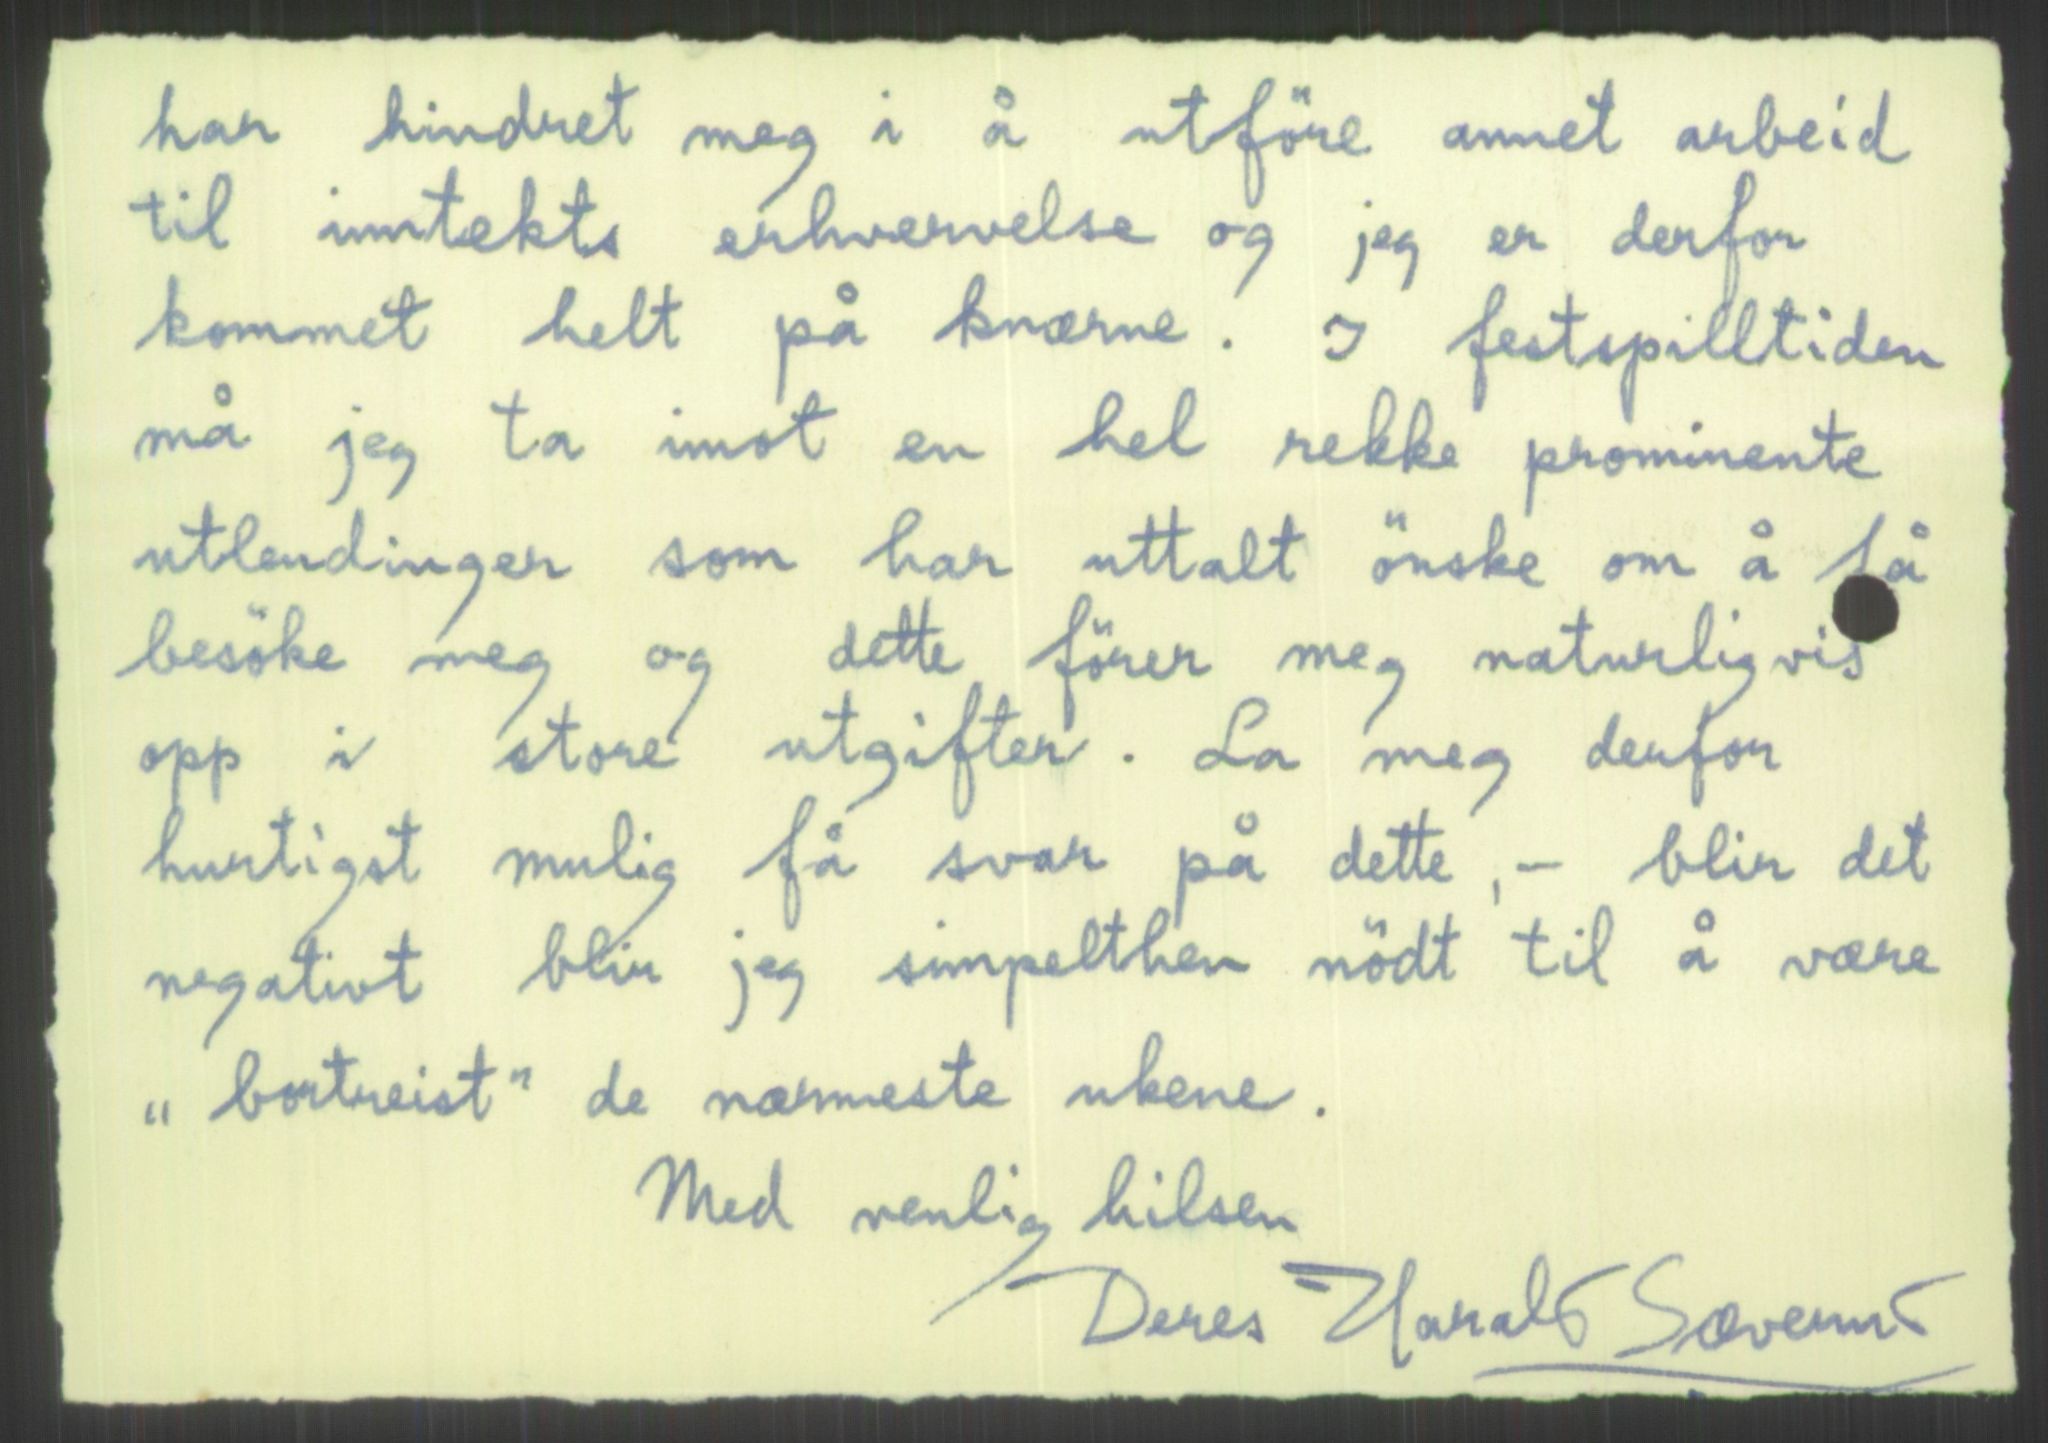 har hindret meg i å utföre annet arbeid
til inntekts erhvervelse og jeg er derfor
kommet helt på knærne. I festspilltiden
må jeg ta imot en hel rekke prominente
utlendinger som har uttalt önske om å få
besöke meg og dette förer meg naturligvis
opp i store utgifter. La meg derfor
hurtigst mulig få svar på dette,- blir det
negativt blir jeg simpelthen nödt til å være
„bortreist" de nærmeste ukene.
Med venlig hilsen
Deres Harald Sæverud